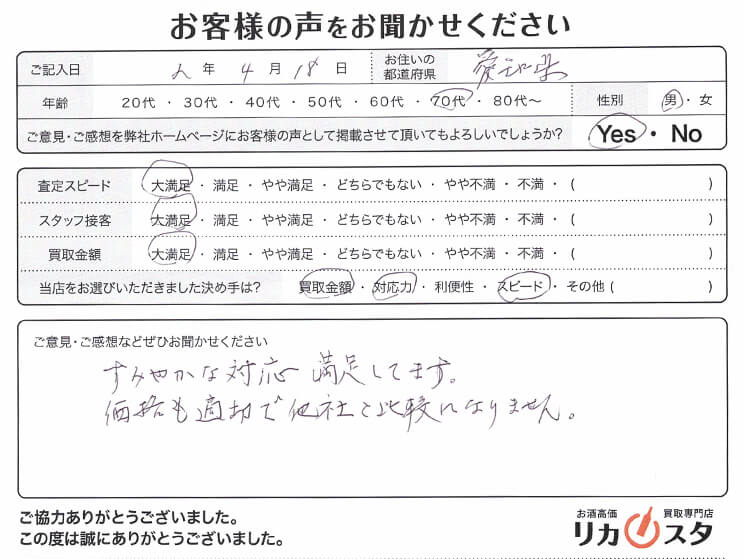 お客様の声をお聞かせください
ご記入日 年 4 月 18 日 お住いの都道府県 愛知県
年齢 20代 ・ 30代 ・ 40代 ・ 50代 ・ 60代 ・ 70代 ・ 80代～ 性別 男 ・ 女
ご意見・ご感想を弊社ホームページにお客様の声として掲載させて頂いてもよろしいでしょうか? Yes ・ No
査定スピード 大満足 ・ 満足 ・ やや満足 ・ どちらでもない ・ やや不満 ・ 不満 ・ ( )
スタッフ接客 大満足 ・ 満足 ・ やや満足 ・ どちらでもない ・ やや不満 ・ 不満 ・ ( )
買取金額 大満足 ・ 満足 ・ やや満足 ・ どちらでもない ・ やや不満 ・ 不満 ・ ( )
当店をお選びいただきました決め手は? 買取金額 ・ 対応力 ・ 利便性 ・ スピード ・ その他 ( )
ご意見・ご感想などぜひお聞かせください
すみやかな対応 満足してます。
価格も適切で他社と比較になりません。
ご協力ありがとうございました。
この度は誠にありがとうございました。
お酒高価 買取専門店
リカスタ